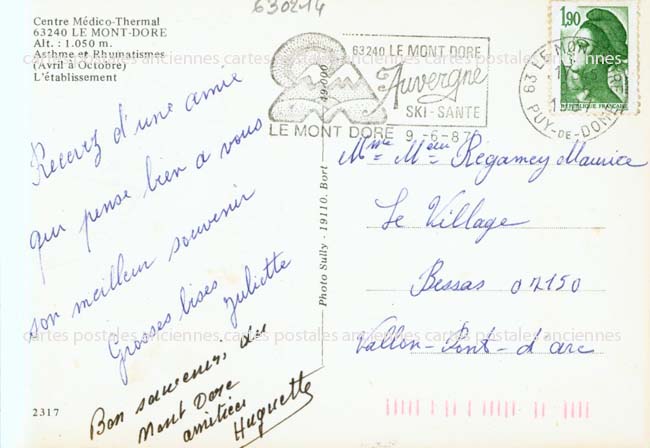 630214
Centre Médico-Thermal
63240 LE MONT-DORE
Alt. : 1.050 m.
Asthme et Rhumatismes
(Avril à Octobre)
L'établissement
Recevez d'une amie
qui pense bien a vous
son meilleur souvenir
Grosses bises
Juliette
Bon souvenir du
Mont Dore
amitiés
Huguette
2317
49.000
Photo Sully - 19110. Bort -
63240 LE MONT DORE
Auvergne
SKI-SANTE
LE MONT DORE 9-6-87
63 LE MONT DORE
PUY-DE-DOME
1,90
REPUBLIQUE FRANÇAISE
Mme Mr Régamey Maurice
Le Village
Bessas 07150
Vallon-Pont-d'arc
cartes postales anciennes cartes postales anciennes cartes postales anciennes
cartes postales anciennes cartes postales anciennes cartes postales anciennes